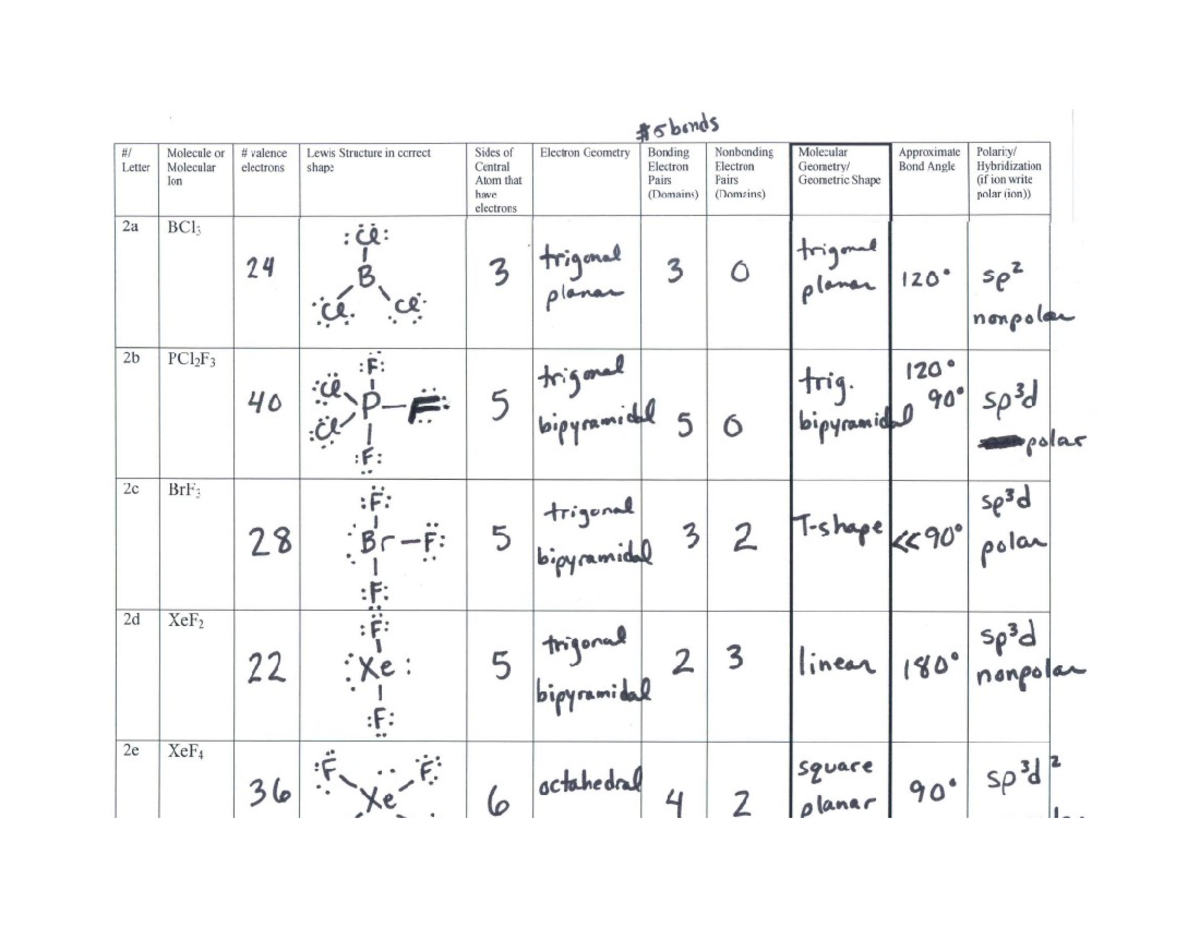 # σ bonds
#/ Letter
Molecule or Molecular Ion
# valence electrons
Lewis Structure in correct shape
Sides of Central Atom that have electrons
Electron Geometry
Bonding Electron Pairs (Domains)
Nonbonding Electron Pairs (Domains)
Molecular Geometry/ Geometric Shape
Approximate Bond Angle
Polarity/ Hybridization (if ion write polar (ion))
2a
BCl₃
24
:Cl:
B
Cl Cl
3
trigonal
planar
3
0
trigonal
planar
120°
sp²
nonpolar
2b
PCl₂F₃
40
:F:
:Cl
P–F:
:Cl
:F:
5
trigonal
bipyramidal
5
0
trig.
bipyramidal
120°
90°
sp³d
polar
2c
BrF₃
28
:F:
:Br–F:
:F:
5
trigonal
bipyramidal
3
2
T-shape
<<90°
sp³d
polar
2d
XeF₂
22
:F:
:Xe:
:F:
5
trigonal
bipyramidal
2
3
linear
180°
sp³d
nonpolar
2e
XeF₄
36
:F F:
Xe
6
octahedral
4
2
square
planar
90°
sp³d²